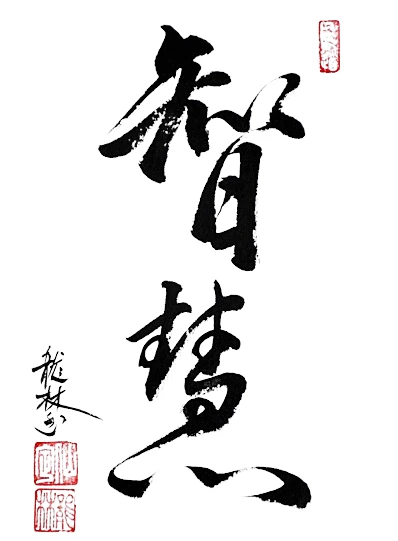 智慧
龍林